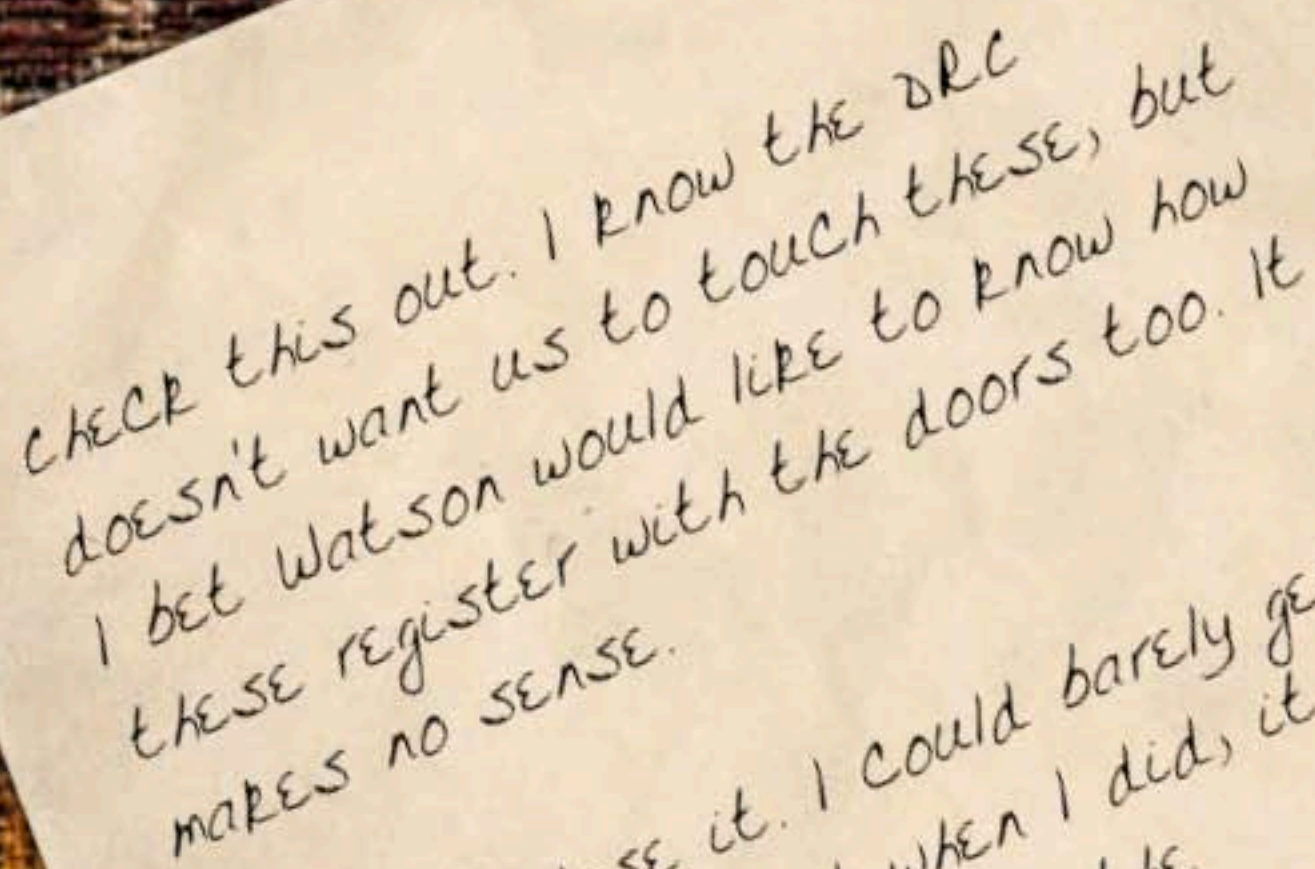 Check this out. I know the DRC
doesn't want us to touch these, but
I bet Watson would like to know how
these register with the doors too. It
makes no sense.
it. I could barely
when I did, it